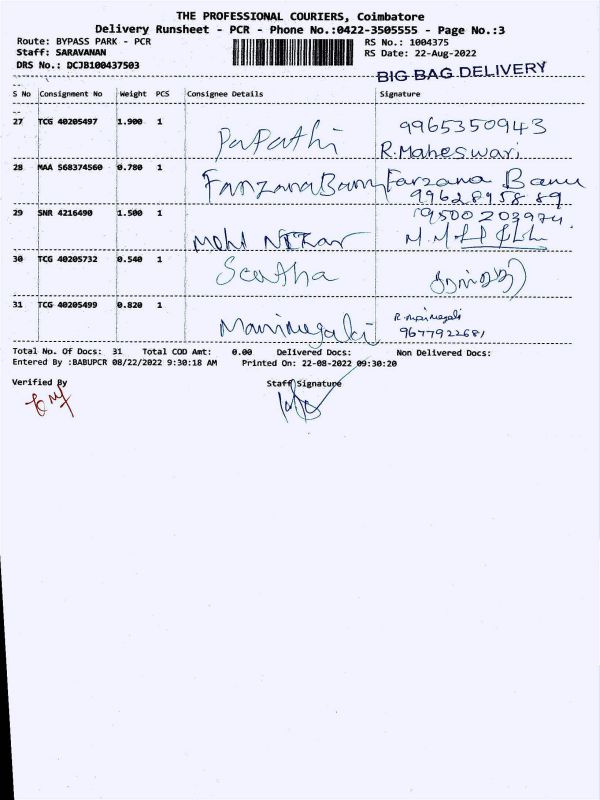 THE PROFESSIONAL COURIERS, Coimbatore
Delivery Runsheet - PCR - Phone No.:0422-3505555 - Page No.:3
Route: BYPASS PARK - PCR RS No.: 1004375
Staff: SARAVANAN RS Date: 22-Aug-2022
DRS No.: DCJB100437503
BIG BAG DELIVERY
S No Consignment No Weight PCS Consignee Details Signature
27 TCG 40205497 1.900 1 Papathi 9965350943
R.Maheswari
28 MAA 568374560 0.780 1 Farzana Banu Farzana Banu
9962895889
29 SNR 4216490 1.500 1 Mohd Nizar 9500203974
30 TCG 40205732 0.540 1
31 TCG 40205499 0.820 1 Manimegalai R. Manimegalai
9677922681
Total No. Of Docs: 31 Total COD Amt: 0.00 Delivered Docs: Non Delivered Docs:
Entered By :BABUPCR 08/22/2022 9:30:18 AM Printed On: 22-08-2022 09:30:20
Verified By Staff Signature